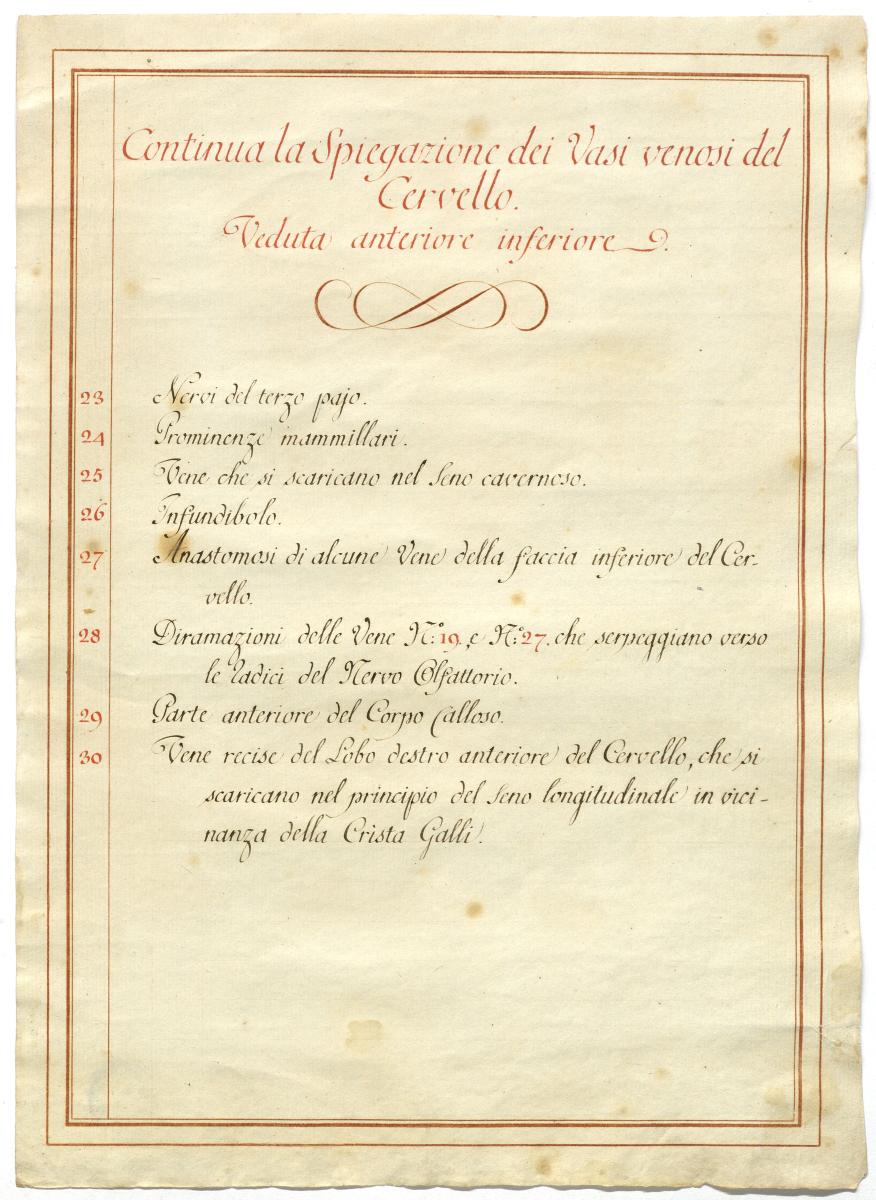 Continua la Spiegazione dei Vasi venosi del
Cervello.
Veduta anteriore inferiore.
23 Nervi del terzo pajo.
24 Prominenze mammillari.
25 Vene che si scaricano nel Seno cavernoso.
26 Infundibolo.
27 Anastomosi di alcune Vene della faccia inferiore del Cer-
vello.
28 Diramazioni delle Vene N.º 19. e N.º 27. che serpeggiano verso
le radici del Nervo Olfattorio.
29 Parte anteriore del Corpo Calloso.
30 Vene recise del Lobo destro anteriore del Cervello, che si
scaricano nel principio del Seno longitudinale in vici-
nanza della Crista Galli.